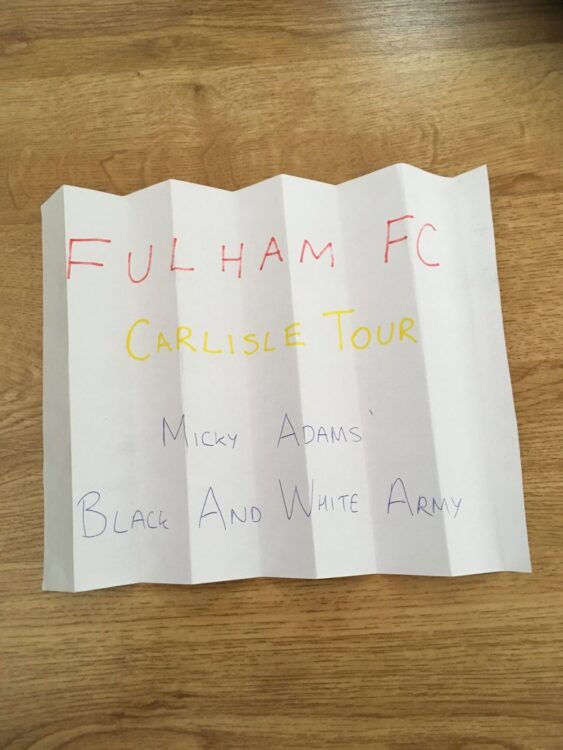 FULHAM FC
CARLISLE TOUR
MICKY ADAMS'
BLACK AND WHITE ARMY